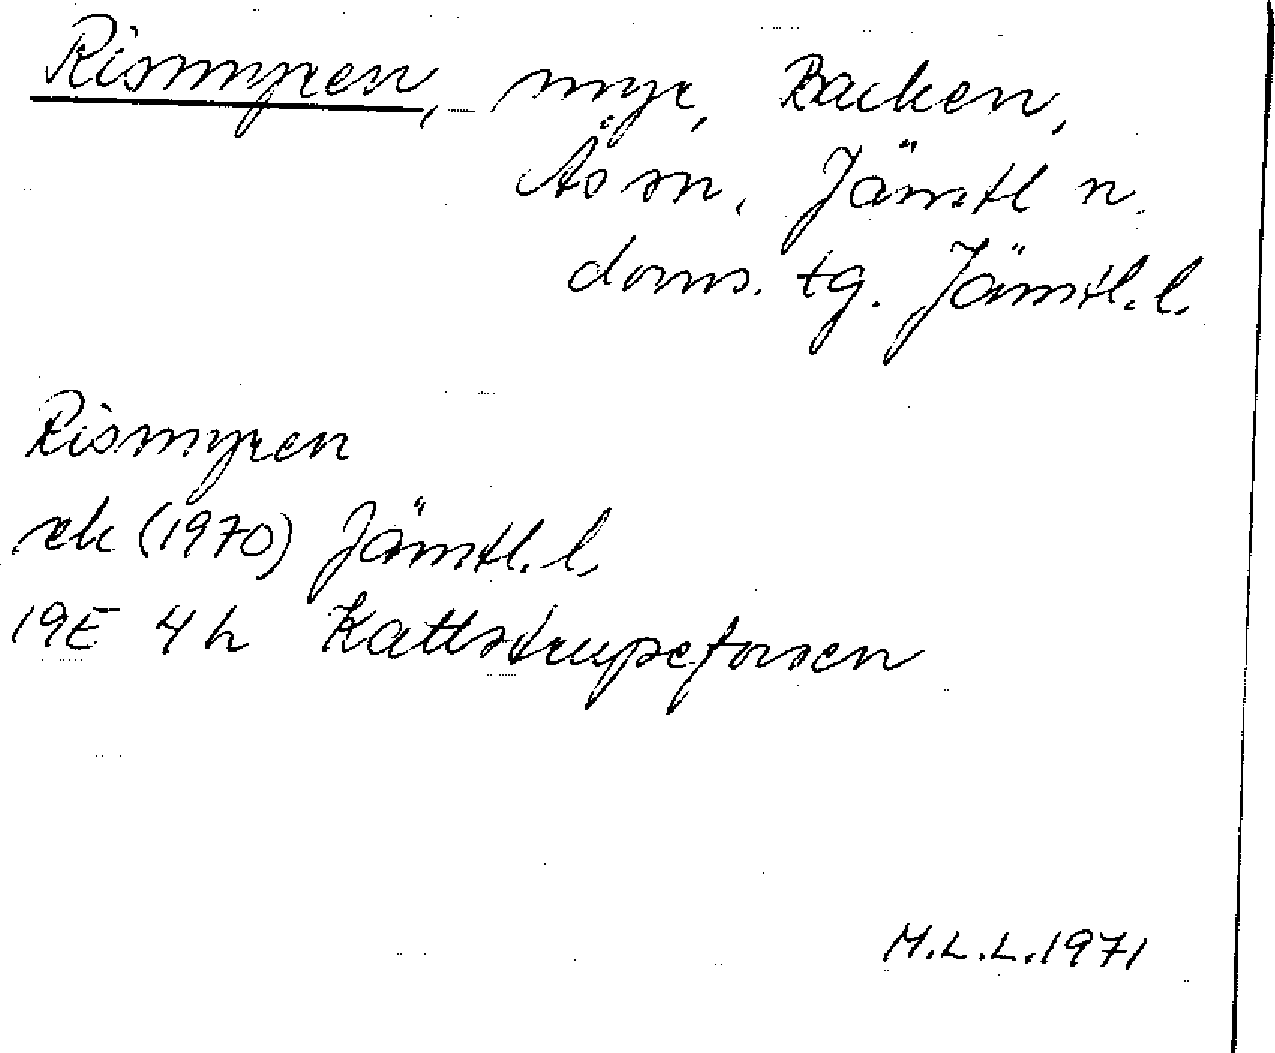 Rismyren, myr, Backen,
Ås sn, Jämtl n.
doms. tg. Jämtl. l.
Rismyren
ek (1970) Jämtl. l.
19E 4h Kattstrupeforsen
M.L.L. 1971